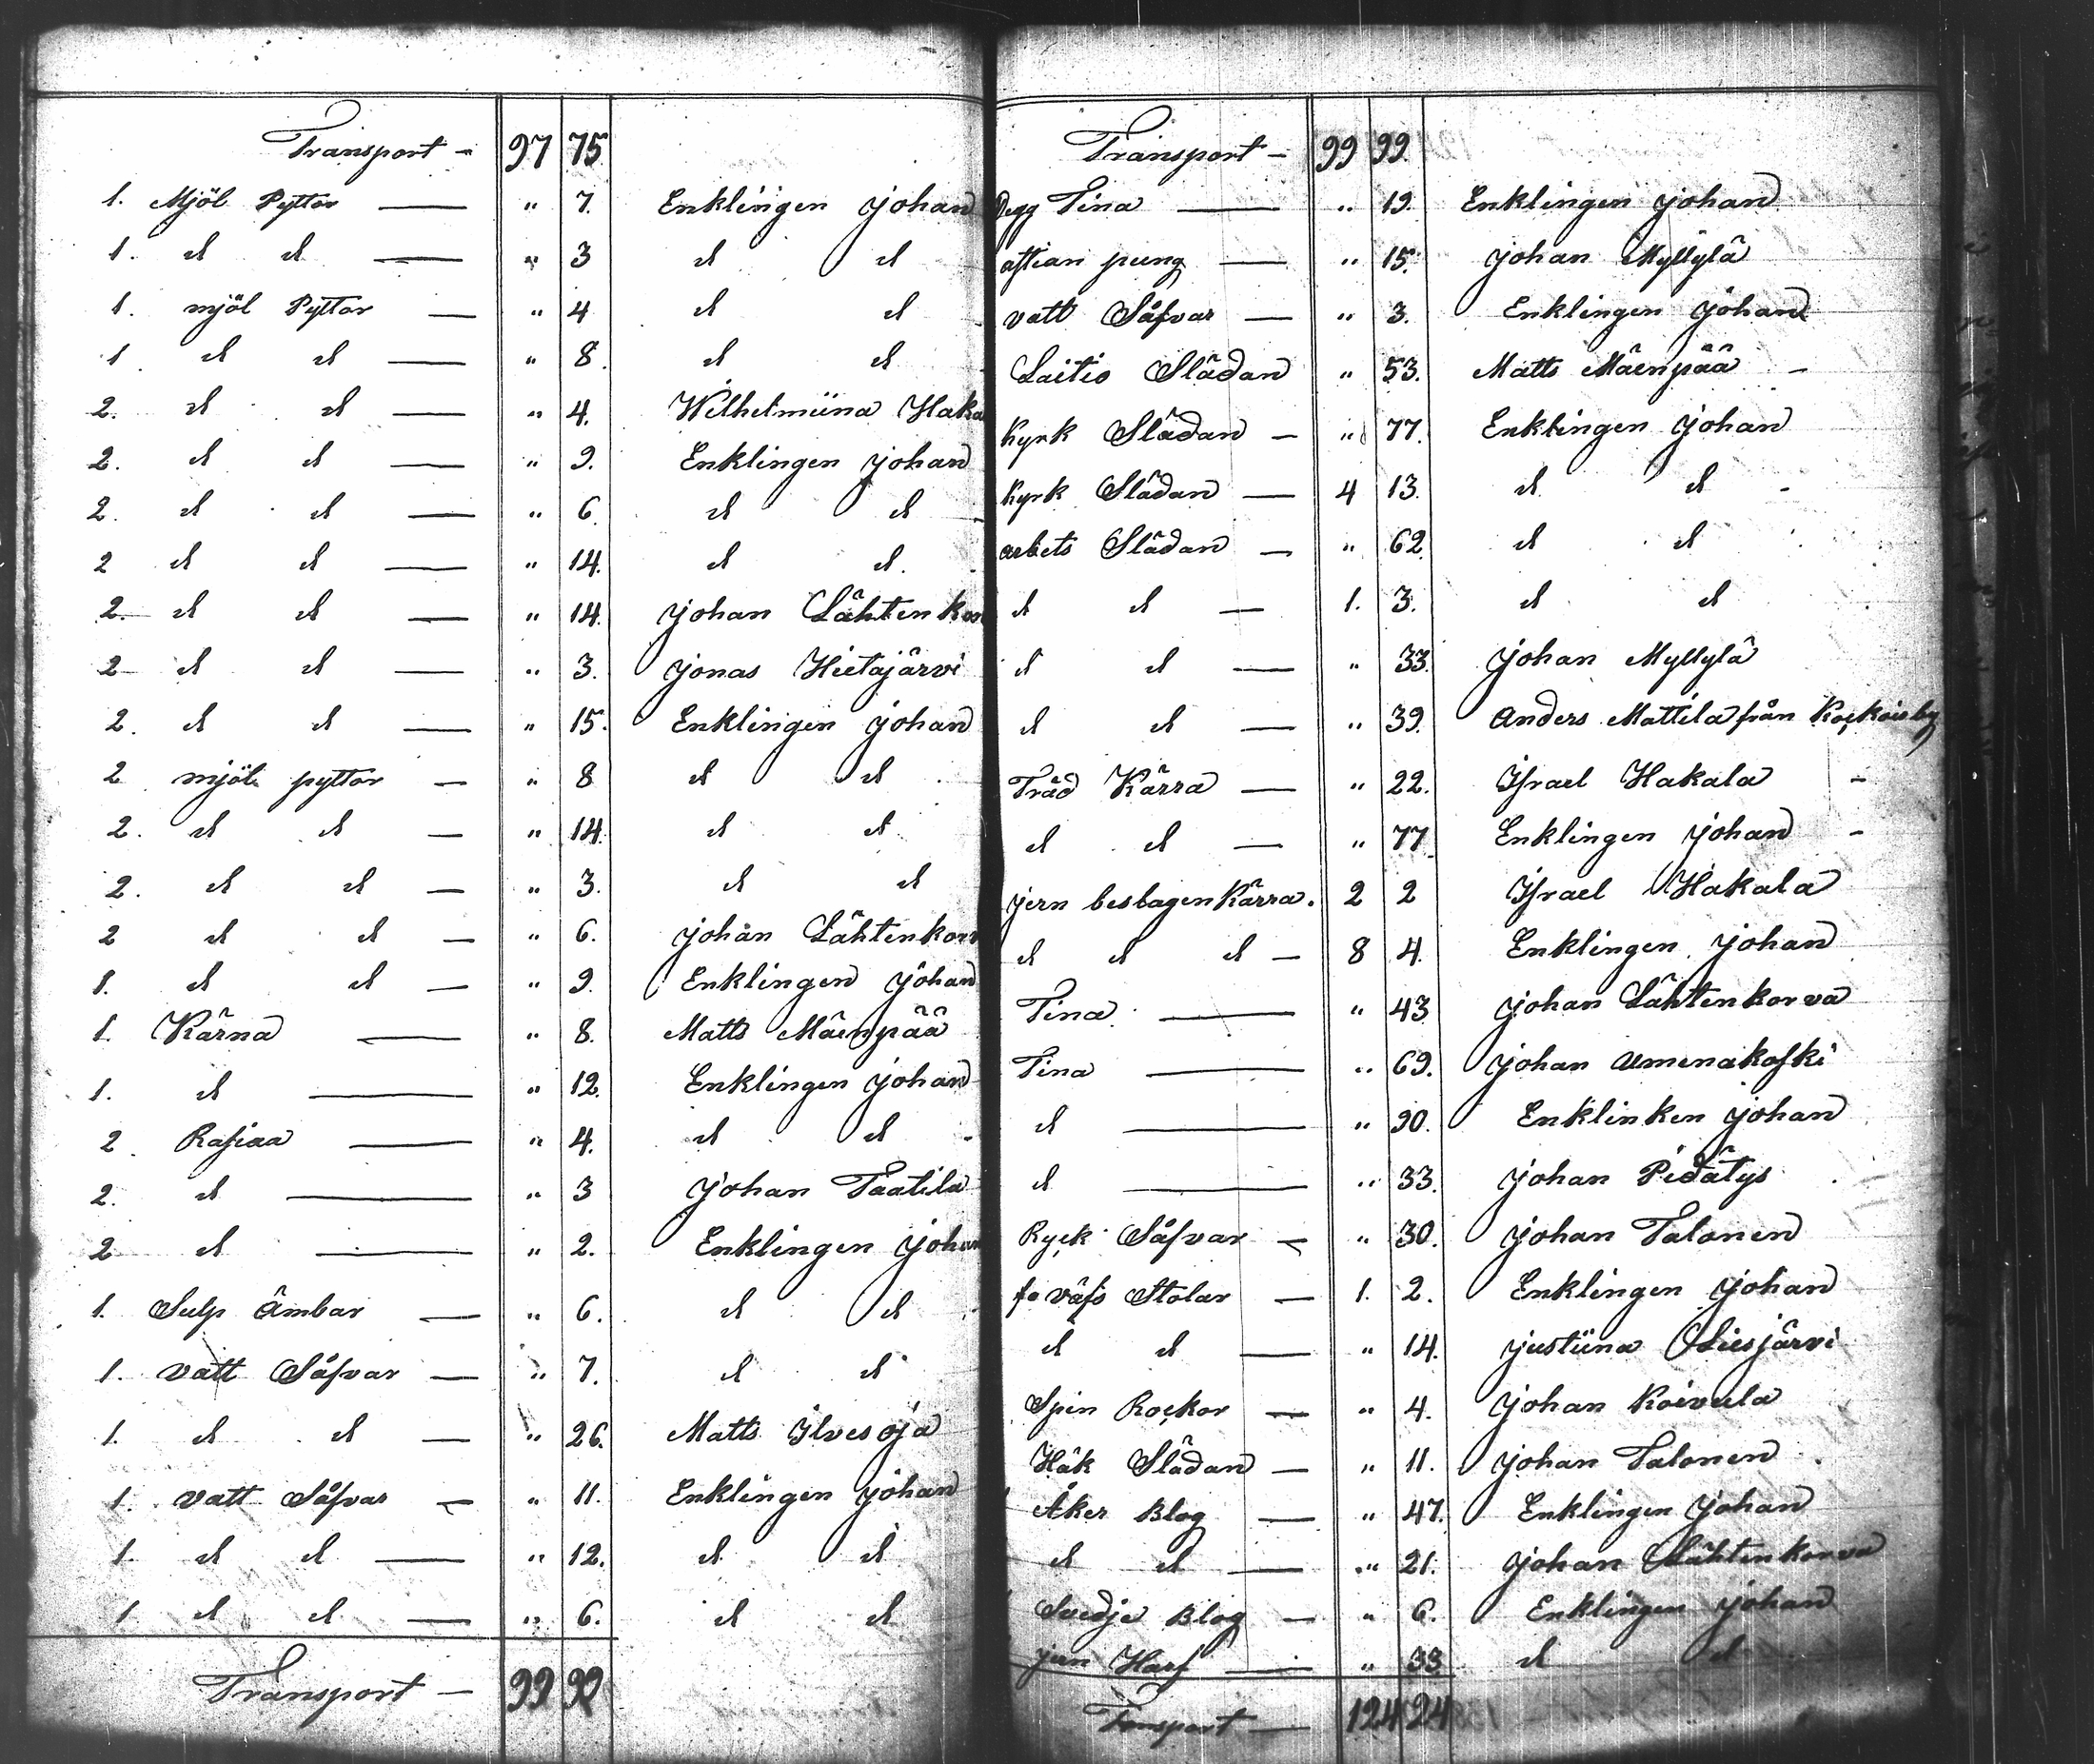 Transport - 97 75
1. Mjöl Pyttor — " 7. Enklingen Johan
1. d d — " 3 d d
1. mjöl Pyttor — " 4 d d
1 d d — " 8. d d
2. d d — " 4. Wilhelmiina Haka
2. d d — " 9. Enklingen Johan
2. d d — " 6. d d
2 d d — " 14. d d
2. d d — " 14. Johan Lähtenkor
2 d d — " 3. Jonas Hietajärvi
2. d d — " 15. Enklingen Johan
2 mjöl pyttor — " 8 d d
2. d d — " 14. d d
2. d d — " 3. d d
2 d d — " 6. Johan Lähtenkor
1. d d — " 9. Enklingen Johan
1. Kärna — " 8. Matts Mäenpää
1. d — " 12. Enklingen Johan
2. Rasiaa — " 4. d d
2. d — " 3 Johan Taatila
2 d — " 2. Enklingen Johan
1. Sulp Ämbar — " 6. d d
1. vatt Såfvar — " 7. d d
1. d d — " 26. Matts Ilvesoja
1. vatt Såfvar — " 11. Enklingen Johan
1. d d — " 12. d d
1 d d — " 6. d d
Transport - 99 99
Transport - 99 99.
Degg Tina — " 19. Enklingen Johan
astian pung — " 15. Johan Myllylä
vatt Såfvar — " 3. Enklingen Johan
Laitio Slädan " 53. Matts Mäenpää -
Kyrk Slädan — " 77. Enklingen Johan
Kyrk Slädan — 4 13. d d -
arbets Slädan — " 62. d d
d d — 1. 3. d d
d d — " 33. Johan Myllylä
d d — " 39. Anders Mattila från Koskoisby
Träd Kärra — " 22. Israel Hakala -
d d — " 77. Enklingen Johan -
jern beslagen Kärra. 2 2 Israel Hakala
d d d — 8 4. Enklingen Johan
Tina — " 43 Johan Lähtenkorva
Tina — " 69. Johan Umenakoski
d — " 90. Enklinken Johan
d — " 33. Johan Pidätys
Ryck Såfvar — " 30. Johan Talonen
väfs Stolar — 1. 2. Enklingen Johan
d d — " 14. Justiina Liesjärvi
Spin Rockor — " 4. Johan Koivula
Häk Slädan — " 11. Johan Talonen
Åker Blog — " 47. Enklingen Johan
d d — " 21. Johan Lähtenkorva
Svedje Blog — " 6. Enklingen Johan
jern Harf — " 33 d d
Transport — 124 24